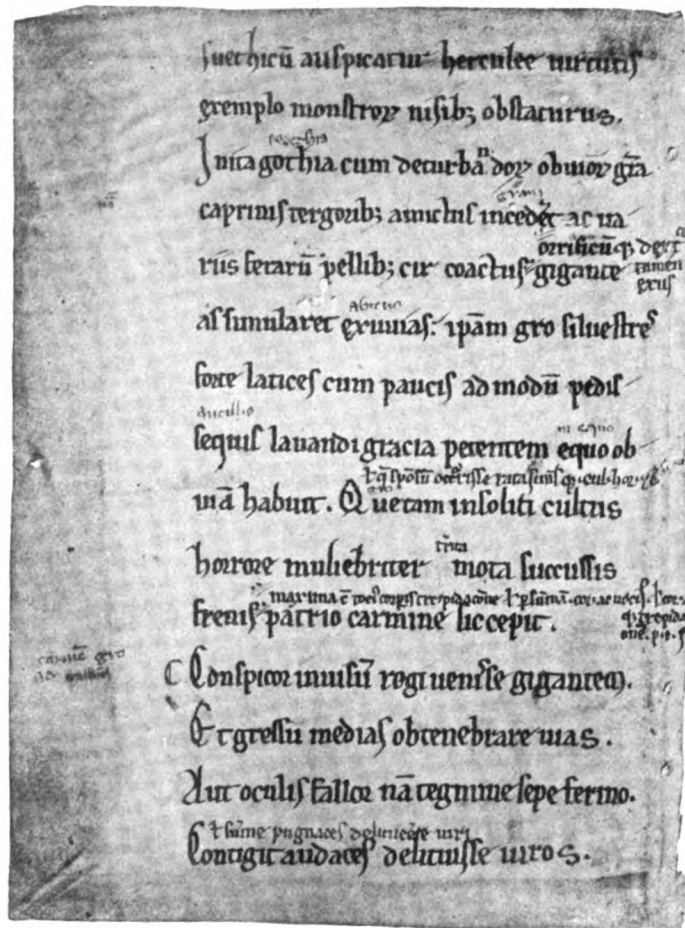 suethicū auspicatur herculee uirtutis
exemplo monstroꝝ nisibꝫ obstaturus.
Inita gothia cum deturbandoꝝ obuioꝝ gr̄a
caprinis tergoribꝫ amictus incederet ac ua
orrificūqꝫ dext
riis feraꝝ pellibꝫ cir coactus gigante
tamen
exuis
assimularet exuuias: ipām gro siluestres
forte latices cum paucis ad modū pedis
ancillis
in equo
sequis lauandi gracia petentem equo ob
uiā habuit. Que tam insoliti cultus
horrore muliebriter mota succussis
frenis patrio carmine sic cepit.
Conspicor inuisū regi uenisse gigantem.
Et gressu medias obtenebrare uias.
Aut oculis fallor nā tegmine sepe ferino.
pugnaces delituisse uiri
Contigit audaces delituisse uiros.